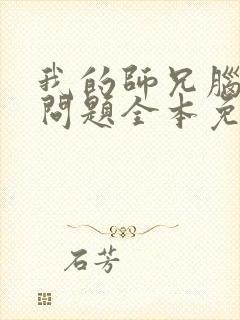 我的師兄腦
問題全本免
石芳